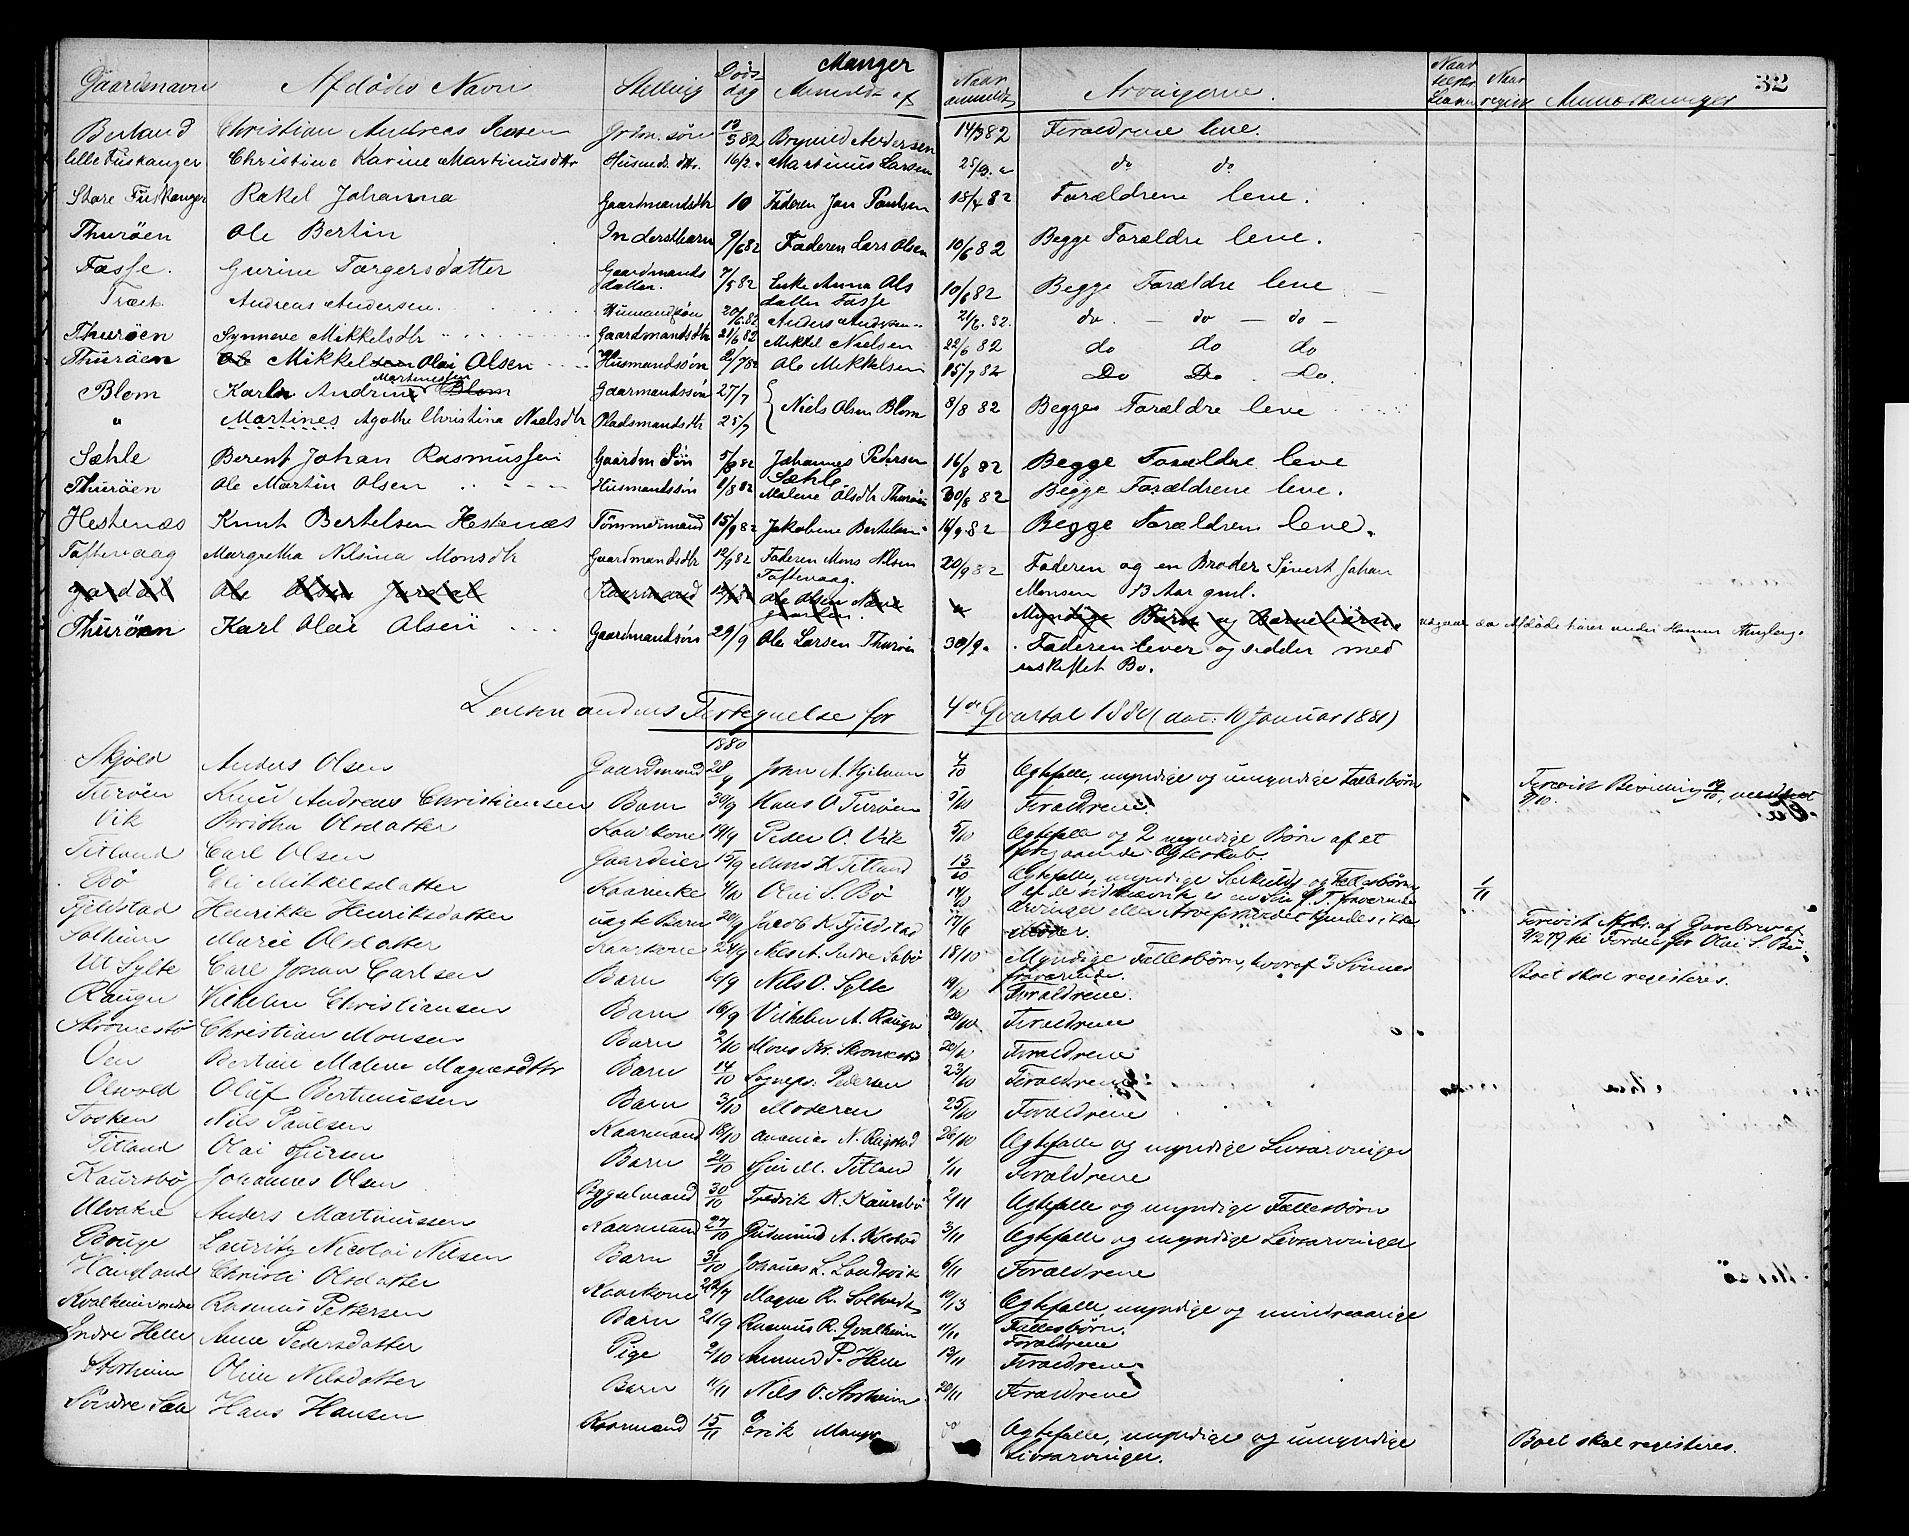 Manger
32
Gaardsnavn Afdødes Navn Stilling Døds dag Anmeldt af Naar anmeldt Arvingerne Naar Naar Anmærkninger
Berland Christian Andreas 82 Brynild Andersen 14/3 82 Forældrene leve.
Lille Fuskanger Christine Karine Martinusdtr Husmds. dtr. 16/2 Martinus Larsen 25/3 do do
Store Fuskanger Rakel Johanna Gaardmandsdtr 10 Faderen Jan Paulsen 18/4 82 Forældrene leve.
Thurøen Ole Bertin Inderstbarn 9/6 82 Faderen Lars Olsen 10/6 82 Begge Forældre leve.
Fosse. Gurine Torgersdatter Gaardmands datter. 7/5 82 Enke Anna Ols datter Fosse 10/6 82 Begge Forældre leve
Træet Andreas Andersen Husmandsøn 20/6 82 Anders Andersen 21/6. 82. do. — do — do —
Thurøen Synneve Mikkelsdtr Gaardmandsdtr 21/6 82 Mikkel Nielsen 22/6 82 do do do
Thurøen Mikkel Olai Olsen Husmandssøn 2/7 82 Ole Mikkelsen 15/7 82 Do Do Do.
Blom Karl Andrine Martinussen Blom Gaarmandssøn 27/7 Niels Olsen Blom 8/8 82 Begges Forældre leve
" Martines Agathe Christina Nielsdtr Pladsmandsdtr 25/7
Sæhle Berent Johan Rasmussen Gaardm Søn 5/8 82 Johannes Pedersen Sæhle 16/8 82 Begge Forældre leve
Thurøen Ole Martin Olsen Husmandssøn 1/8 82 Malene Olsdtr Thurøen 30/8 82 Begge Forældrene leve.
Hestenæs Knut Bertelsen Hestenæs Tømmermand 15/9 82 Jakobine Bertelsen 16/9. 82 Begge Forældrene leve.
Toftevaag Margretha Nilsina Monsdtr Gaardmandsdtr 12/9 82 Faderen Mons Nilsen Toftevaag. 20/9 82 Faderen og en Broder Sivert Johan
Monsen 13 Aar gml.
Jordal Ole Olsen Jordal Kaarmand Ole Olsen " Myndige Børn og Barnebørn. udgaar da Afdøde hører under Hammer Thinglag.
Thurøen Karl Olai Olsen Gaardmandsøn 29/9 Ole Larsen Thurøen 30/9 Faderen lever og sidder med
uskiftet Bo.
Lensmandens Fortegnelse for 4de Qvartal 1880 (dat. 10 Januar 1881)
1880
Skjold Anders Olsen Gaardmand 28/9 John A. 4/10 Ægtefælle, myndige og umyndige Fællesbørn
Turøen Knud Andreas Christiansen Barn 30/9 Hans O. Turøen 5/10 Forældrene
Vik Brithe Olsdatter Kaarkone 19/9 Peder O. Vik 5/10 Ægtefælle og 2 myndige Børn af et
foregaaende Ægteskab.
Titland Carl Olsen Gaardeier 15/9 Mons K. Titland 13/10 Ægtefælle, myndige Særkulds og Fællesbørn
Bø Eli Mikkelsdatter Kaarenke Olai S. Bø 14/10
Fjeldstad Henrikke Henriksdatter uægte Barn 20/9 Jacob K Fjeldstad 17/6
Solheim Marie Olsdatter Kaarkone 24/9 18/10 Myndige Fællesbørn, hvoraf 3 Sønner
fraværende.
Boet skal registeres.
Ut Sylte Carl Johan Carlsen Barn Nils O. Sylte Forældrene.
Raugn Vilhelm Christiansen Barn 16/9 Vilhelm A. Raugn 20/10 Forældrene
Christian Monsen Barn 2/10 Mons 20/10 Forældrene
Oen Bertine Malene Magnesdtr Barn 14/10 Sognepr. Pedersen 23/10 Forældrene
Olsvold Oluf Bertinussen Barn 3/10 Moderen 25/10 Forældrene
Tosken Nils Paulsen Kaarmand 18/10 Ananias N. 26/10 Ægtefælle og myndige Livsarvinger
Titland Olai Sjursen Barn 20/10 Sjur M. Titland 1/11 Forældrene
Kaursbø Johannes Olsen Bygselmand 30/10 Fredrik K. Kaursbø 2/11 Ægtefælle og myndige Fællesbørn
Ulvatne Anders Martinussen Kaarmand 27/10 Gudmund A. 3/11 Ægtefælle og myndige Livsarvinger
Bouge Lauritz Nicolai Nilsen Barn 31/10 Johanes L. 6/11 Forældrene
Haugland Christi Olsdatter Kaarkone Magne R. Ægtefælle, myndige og mindreaarige
Fællesbørn.
Kvalheim nedre Rasmus Pettersen Barn 21/9 Rasmus R. Qvalheim 11/11 Forældrene
Indre Helle Anne Pedersdatter Pige 2/10 Amund P. Helle 13/11 Forældrene
Storheim Oline Nilsdatter Barn 11/11 Nils O. Storheim 20/11 Forældrene
Søndre Hans Hansen Kaarmand 15/11 Erik Manger do Ægtefælle, myndige og umyndige
Livsarvinger.
Boet skal registeres.